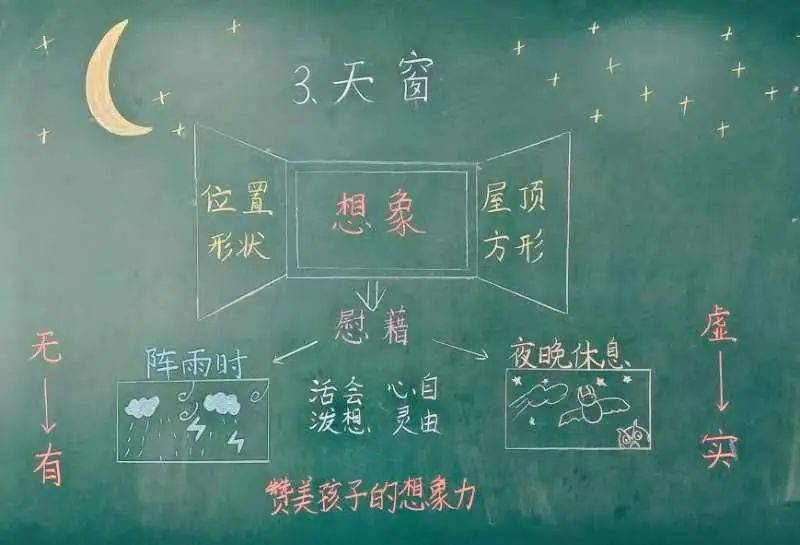 3.天窗
位置
形状
想象
屋顶
方形
慰藉
阵雨时
夜晚休息
活会 心自
泼想 灵由
无
有
虚
实
赞美孩子的想象力